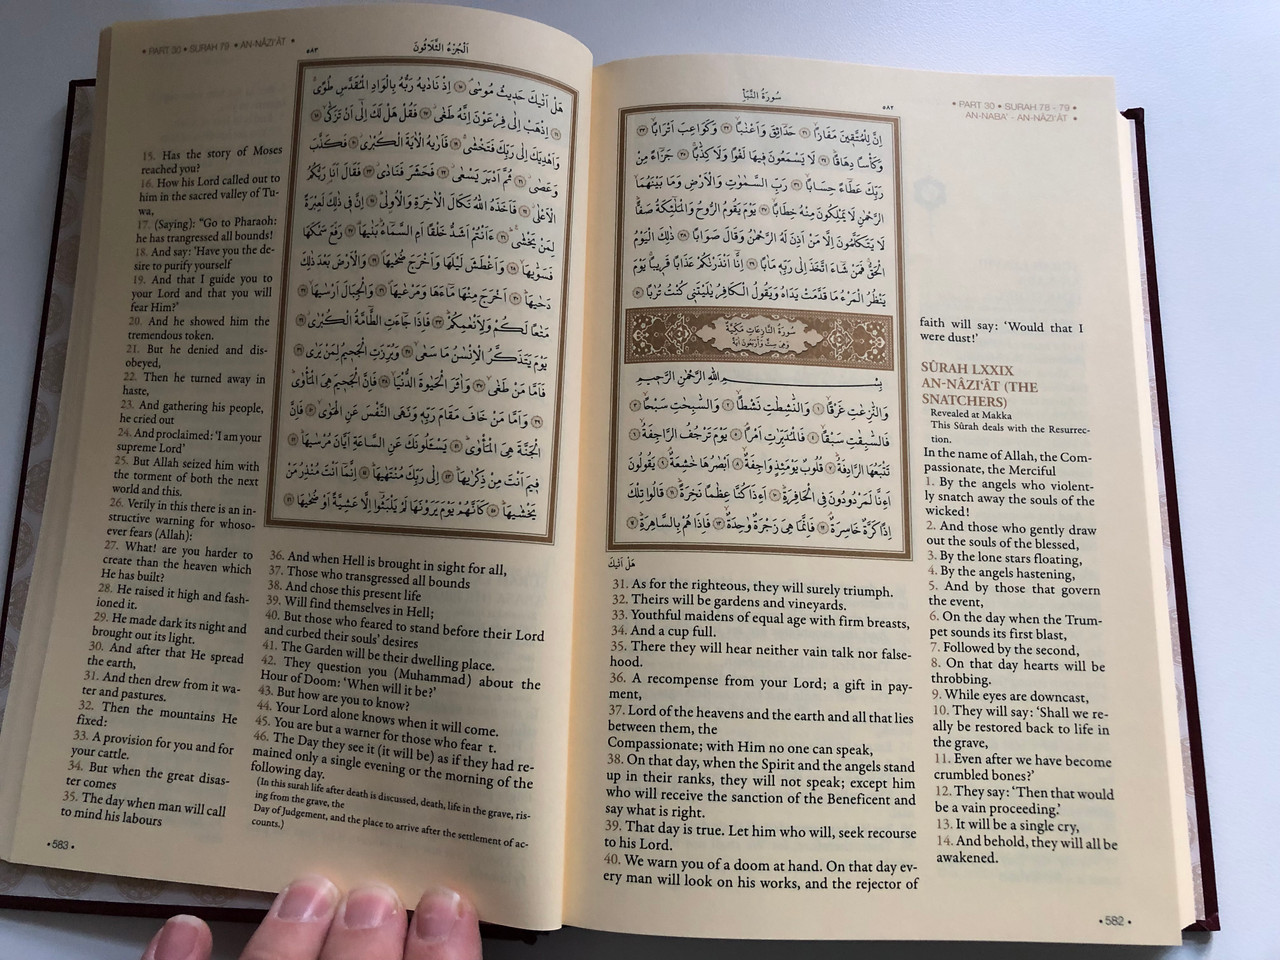 سُورَةُ النَّبَأِ
٥٨٢
• PART 30 • SURAH 78 - 79 •
AN-NABA' - AN-NÂZİ'ÂT •
اِنَّ لِلْمُتَّقٖينَ مَفَازًاۙ ﴿٣١﴾ حَدَٓائِقَ وَاَعْنَابًاۙ ﴿٣٢﴾ وَكَوَاعِبَ اَتْرَابًاۙ ﴿٣٣﴾
وَكَأْسًا دِهَاقًاۜ ﴿٣٤﴾ لَا يَسْمَعُونَ فٖيهَا لَغْوًا وَلَا كِذَّابًاۚ ﴿٣٥﴾ جَزَٓاءً مِنْ
رَبِّكَ عَطَٓاءً حِسَابًاۙ ﴿٣٦﴾ رَبِّ السَّمٰوَاتِ وَالْاَرْضِ وَمَا بَيْنَهُمَا
الرَّحْمٰنِ لَا يَمْلِكُونَ مِنْهُ خِطَابًاۚ ﴿٣٧﴾ يَوْمَ يَقُومُ الرُّوحُ وَالْمَلٰٓئِكَةُ صَفًّاۜ
لَا يَتَكَلَّمُونَ اِلَّا مَنْ اَذِنَ لَهُ الرَّحْمٰنُ وَقَالَ صَوَابًا ﴿٣٨﴾ ذٰلِكَ الْيَوْمُ
الْحَقُّۚ فَمَنْ شَٓاءَ اتَّخَذَ اِلٰى رَبِّهٖ مَاٰبًا ﴿٣٩﴾ اِنَّٓا اَنْذَرْنَاكُمْ عَذَابًا قَرٖيبًاۚ يَوْمَ
يَنْظُرُ الْمَرْءُ مَا قَدَّمَتْ يَدَاهُ وَيَقُولُ الْكَافِرُ يَا لَيْتَنٖي كُنْتُ تُرَابًا ﴿٤٠﴾
سُورَةُ النَّازِعَاتِ مَكِّيَّةٌ
وَهِيَ سِتٌّ وَاَرْبَعُونَ اٰيَةً
بِسْمِ اللهِ الرَّحْمٰنِ الرَّحٖيمِ
وَالنَّازِعَاتِ غَرْقًاۙ ﴿١﴾ وَالنَّاشِطَاتِ نَشْطًاۙ ﴿٢﴾ وَالسَّابِحَاتِ سَبْحًاۙ ﴿٣﴾
فَالسَّابِقَاتِ سَبْقًاۙ ﴿٤﴾ فَالْمُدَبِّرَاتِ اَمْرًاۢ ﴿٥﴾ يَوْمَ تَرْجُفُ الرَّاجِفَةُۙ ﴿٦﴾
تَتْبَعُهَا الرَّادِفَةُۜ ﴿٧﴾ قُلُوبٌ يَوْمَئِذٍ وَاجِفَةٌۙ ﴿٨﴾ اَبْصَارُهَا خَاشِعَةٌۢ ﴿٩﴾ يَقُولُونَ
ءَاِنَّا لَمَرْدُودُونَ فِي الْحَافِرَةِۜ ﴿١٠﴾ ءَاِذَا كُنَّا عِظَامًا نَخِرَةًۜ ﴿١١﴾ قَالُوا تِلْكَ
اِذًا كَرَّةٌ خَاسِرَةٌۢ ﴿١٢﴾ فَاِنَّمَا هِيَ زَجْرَةٌ وَاحِدَةٌۙ ﴿١٣﴾ فَاِذَا هُمْ بِالسَّاهِرَةِۜ ﴿١٤﴾
هَلْ اَتٰيكَ
31. As for the righteous, they will surely triumph.
32. Theirs will be gardens and vineyards.
33. Youthful maidens of equal age with firm breasts,
34. And a cup full.
35. There they will hear neither vain talk nor false-
hood.
36. A recompense from your Lord; a gift in pay-
ment,
37. Lord of the heavens and the earth and all that lies
between them, the
Compassionate; with Him no one can speak,
38. On that day, when the Spirit and the angels stand
up in their ranks, they will not speak; except him
who will receive the sanction of the Beneficent and
say what is right.
39. That day is true. Let him who will, seek recourse
to his Lord.
40. We warn you of a doom at hand. On that day ev-
ery man will look on his works, and the rejector of
faith will say: 'Would that I
were dust!'
SÛRAH LXXIX
AN-NÂZİ'ÂT (THE
SNATCHERS)
Revealed at Makka
This Sûrah deals with the Resurrec-
tion.
In the name of Allah, the Com-
passionate, the Merciful
1. By the angels who violent-
ly snatch away the souls of the
wicked!
2. And those who gently draw
out the souls of the blessed,
3. By the lone stars floating,
4. By the angels hastening,
5. And by those that govern
the event,
6. On the day when the Trum-
pet sounds its first blast,
7. Followed by the second,
8. On that day hearts will be
throbbing.
9. While eyes are downcast,
10. They will say: 'Shall we re-
ally be restored back to life in
the grave,
11. Even after we have become
crumbled bones?'
12. They say: 'Then that would
be a vain proceeding.'
13. It will be a single cry,
14. And behold, they will all be
awakened.
• 582 •
• PART 30 • SURAH 79 • AN-NÂZİ'ÂT •
٥٨٣
اَلْجُزْءُ الثَّلَاثُونَ
هَلْ اَتٰيكَ حَدٖيثُ مُوسٰىۢ ﴿١٥﴾ اِذْ نَادٰيهُ رَبُّهُ بِالْوَادِ الْمُقَدَّسِ طُوًىۚ
﴿١٦﴾ اِذْهَبْ اِلٰى فِرْعَوْنَ اِنَّهُ طَغٰىۘ ﴿١٧﴾ فَقُلْ هَلْ لَكَ اِلٰٓى اَنْ تَزَكّٰىۙ ﴿١٨﴾
وَاَهْدِيَكَ اِلٰى رَبِّكَ فَتَخْشٰىۚ ﴿١٩﴾ فَاَرٰيهُ الْاٰيَةَ الْكُبْرٰىۘ ﴿٢٠﴾ فَكَذَّبَ
وَعَصٰىۘ ﴿٢١﴾ ثُمَّ اَدْبَرَ يَسْعٰىۘ ﴿٢٢﴾ فَحَشَرَ فَنَادٰىۘ ﴿٢٣﴾ فَقَالَ اَنَا۬ رَبُّكُمُ
الْاَعْلٰىۘ ﴿٢٤﴾ فَاَخَذَهُ اللهُ نَكَالَ الْاٰخِرَةِ وَالْاُولٰىۜ ﴿٢٥﴾ اِنَّ فٖي ذٰلِكَ لَعِبْرَةً
لِمَنْ يَخْشٰىۜ ﴿٢٦﴾ ءَاَنْتُمْ اَشَدُّ خَلْقًا اَمِ السَّمَٓاءُۜ بَنٰيهَا۠ ﴿٢٧﴾ رَفَعَ سَمْكَهَا
فَسَوّٰيهَاۙ ﴿٢٨﴾ وَاَغْطَشَ لَيْلَهَا وَاَخْرَجَ ضُحٰيهَاۖ ﴿٢٩﴾ وَالْاَرْضَ بَعْدَ ذٰلِكَ
دَحٰيهَاۜ ﴿٣٠﴾ اَخْرَجَ مِنْهَا مَٓاءَهَا وَمَرْعٰيهَاۖ ﴿٣١﴾ وَالْجِبَالَ اَرْسٰيهَاۙ ﴿٣٢﴾
مَتَاعًا لَكُمْ وَلِاَنْعَامِكُمْۜ ﴿٣٣﴾ فَاِذَا جَٓاءَتِ الطَّٓامَّةُ الْكُبْرٰىۘ ﴿٣٤﴾
يَوْمَ يَتَذَكَّرُ الْاِنْسَانُ مَا سَعٰىۙ ﴿٣٥﴾ وَبُرِّزَتِ الْجَحٖيمُ لِمَنْ يَرٰى ﴿٣٦﴾
فَاَمَّا مَنْ طَغٰىۙ ﴿٣٧﴾ وَاٰثَرَ الْحَيٰوةَ الدُّنْيَاۙ ﴿٣٨﴾ فَاِنَّ الْجَحٖيمَ هِيَ الْمَأْوٰىۜ
﴿٣٩﴾ وَاَمَّا مَنْ خَافَ مَقَامَ رَبِّهٖ وَنَهَى النَّفْسَ عَنِ الْهَوٰىۙ ﴿٤٠﴾ فَاِنَّ
الْجَنَّةَ هِيَ الْمَأْوٰىۜ ﴿٤١﴾ يَسْـَٔلُونَكَ عَنِ السَّاعَةِ اَيَّانَ مُرْسٰيهَاۜ ﴿٤٢﴾
فٖيمَ اَنْتَ مِنْ ذِكْرٰيهَاۜ ﴿٤٣﴾ اِلٰى رَبِّكَ مُنْتَهٰيهَاۜ ﴿٤٤﴾ اِنَّمَٓا اَنْتَ مُنْذِرُ مَنْ
يَخْشٰيهَاۜ ﴿٤٥﴾ كَاَنَّهُمْ يَوْمَ يَرَوْنَهَا لَمْ يَلْبَثُٓوا اِلَّا عَشِيَّةً اَوْ ضُحٰيهَا ﴿٤٦﴾
15. Has the story of Moses
reached you?
16. How his Lord called out to
him in the sacred valley of Tu-
wa,
17. (Saying): "Go to Pharaoh:
he has trangressed all bounds!
18. And say: 'Have you the de-
sire to purify yourself
19. And that I guide you to
your Lord and that you will
fear Him?'
20. And he showed him the
tremendous token.
21. But he denied and dis-
obeyed,
22. Then he turned away in
haste,
23. And gathering his people,
he cried out
24. And proclaimed: 'I am your
supreme Lord'
25. But Allah seized him with
the torment of both the next
world and this.
26. Verily in this there is an in-
structive warning for whoso-
ever fears (Allah):
27. What! are you harder to
create than the heaven which
He has built?
28. He raised it high and fash-
ioned it.
29. He made dark its night and
brought out its light.
30. And after that He spread
the earth,
31. And then drew from it wa-
ter and pastures.
32. Then the mountains He
fixed:
33. A provision for you and for
your cattle.
34. But when the great disas-
ter comes
35. The day when man will call
to mind his labours
36. And when Hell is brought in sight for all,
37. Those who transgressed all bounds
38. And chose this present life
39. Will find themselves in Hell;
40. But those who feared to stand before their Lord
and curbed their souls' desires
41. The Garden will be their dwelling place.
42. They question you (Muhammad) about the
Hour of Doom: 'When will it be?'
43. But how are you to know?
44. Your Lord alone knows when it will come.
45. You are but a warner for those who fear t.
46. The Day they see it (it will be) as if they had re-
mained only a single evening or the morning of the
following day.
(In this surah life after death is discussed, death, life in the grave, ris-
ing from the grave, the
Day of Judgement, and the place to arrive after the settlement of ac-
counts.)
• 583 •